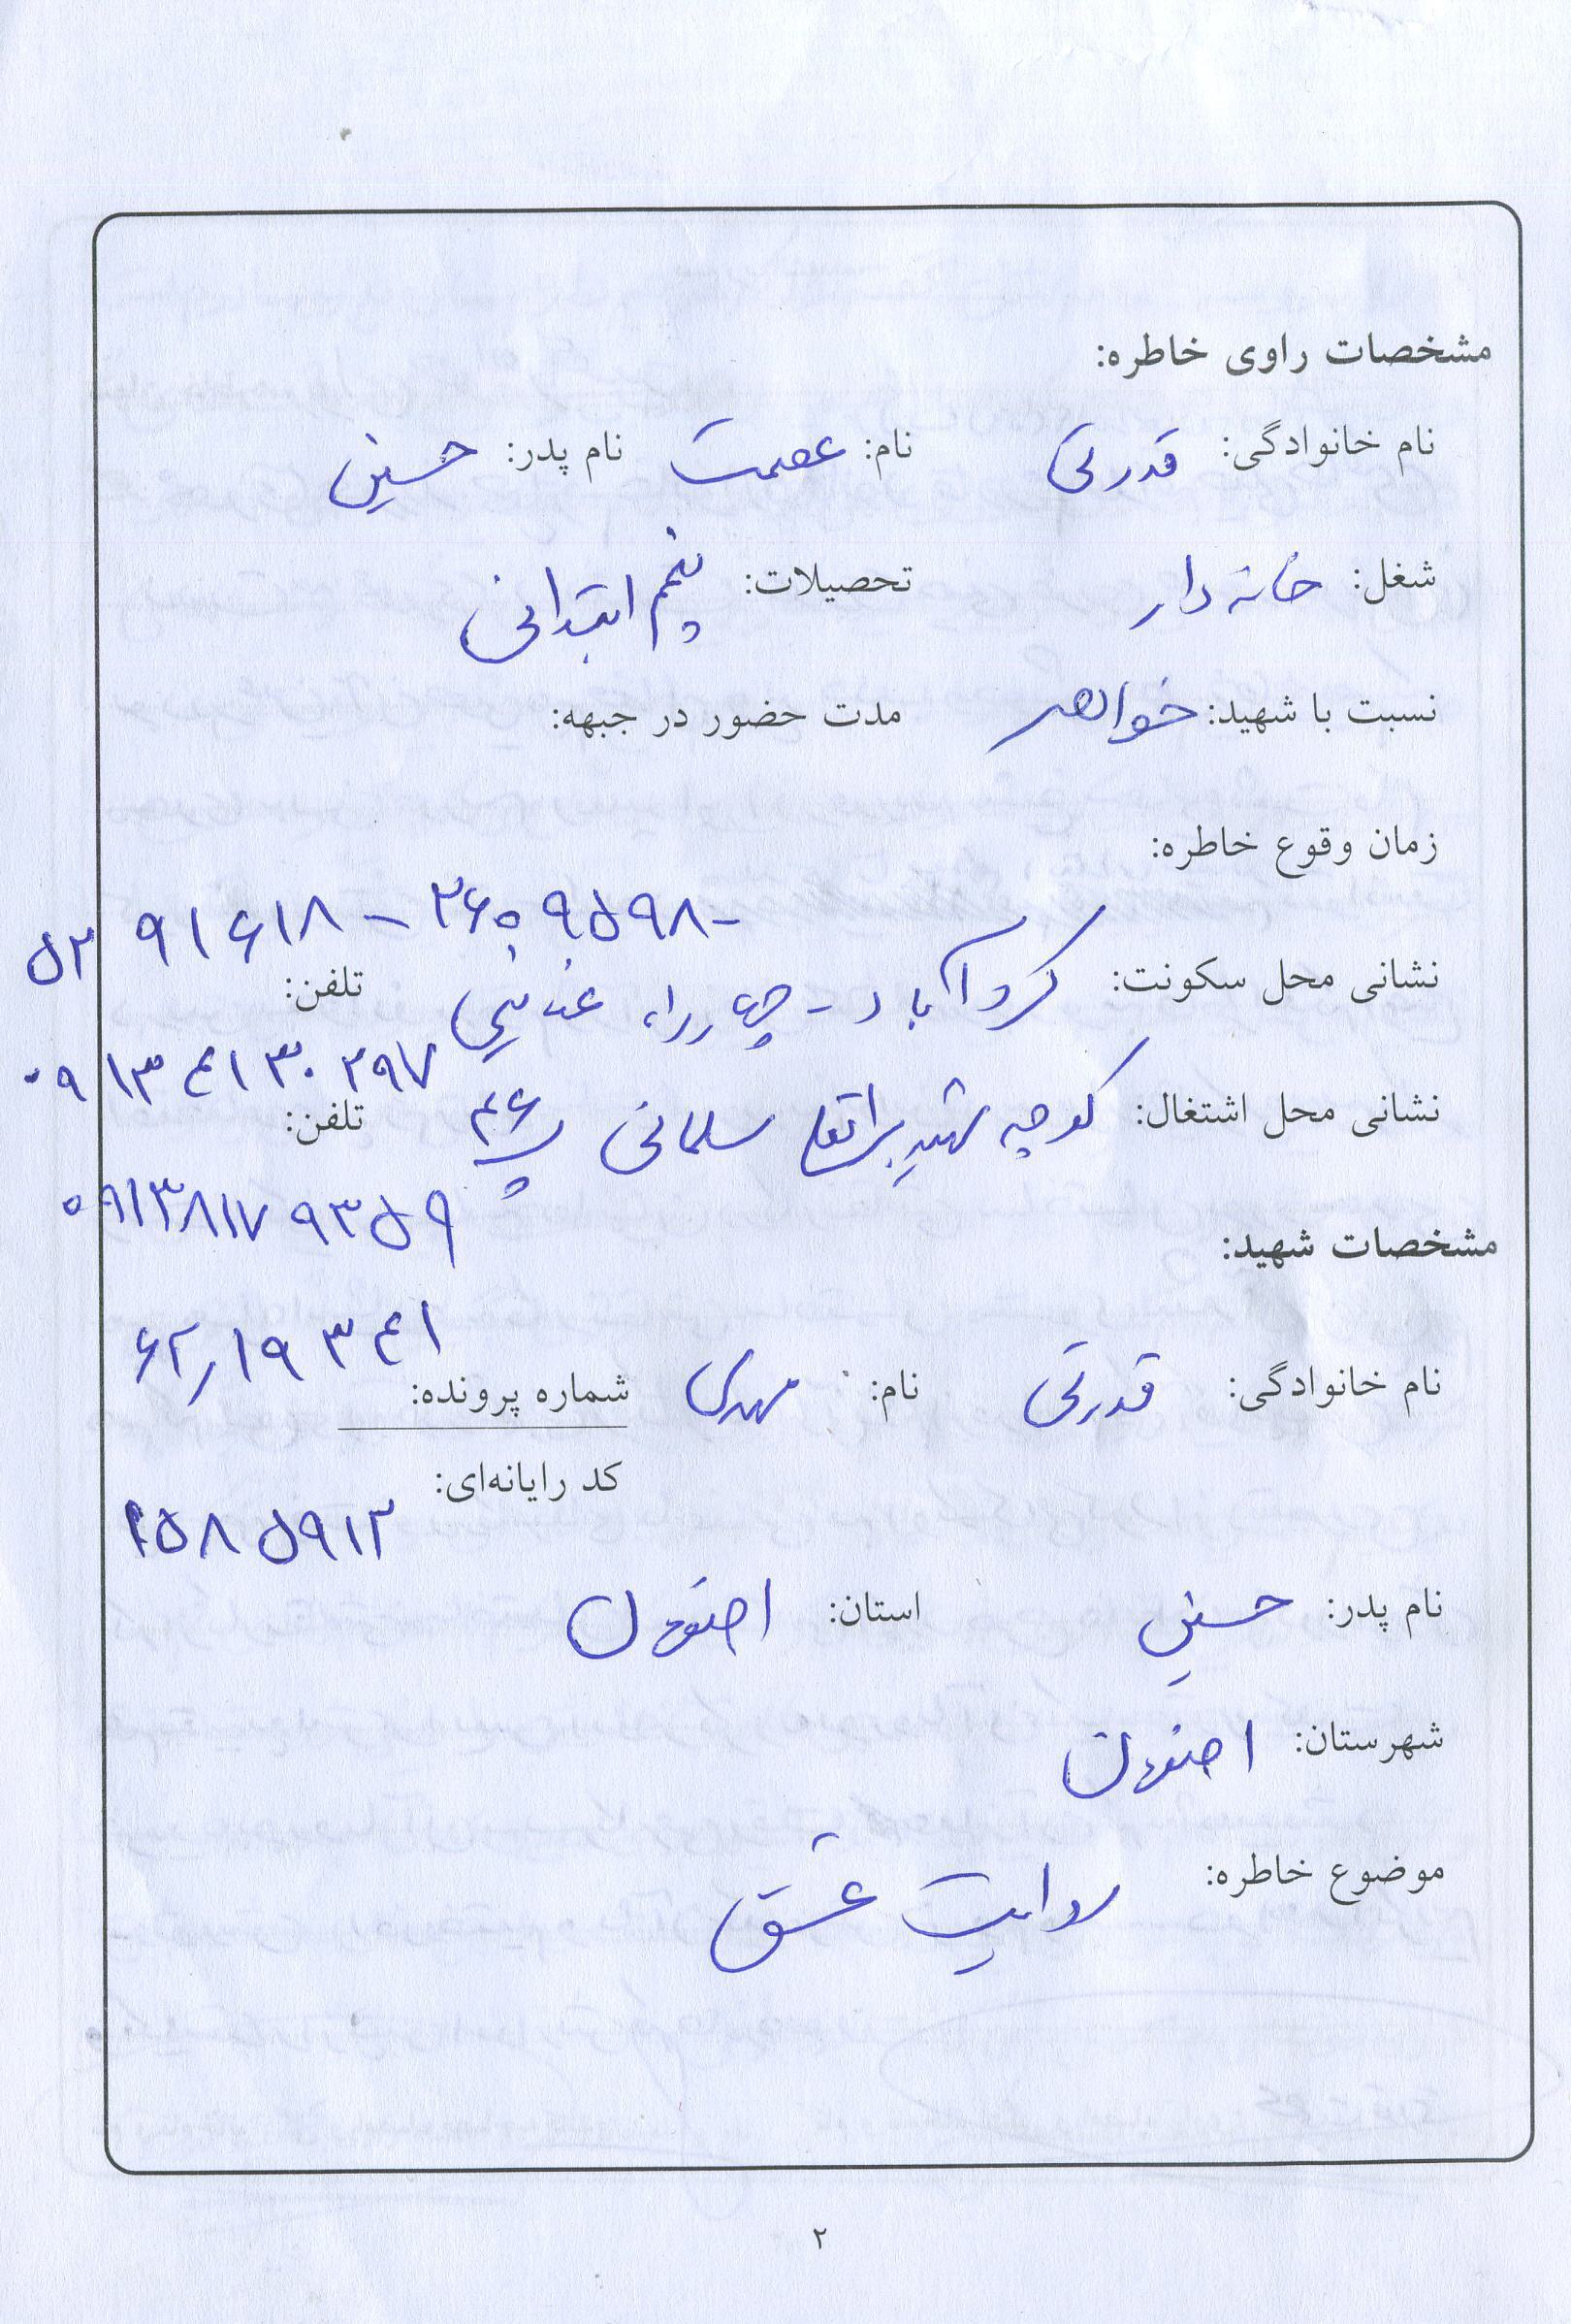 مشخصات راوی خاطره:
نام خانوادگی: قدرتی نام: عصمت نام پدر: حسین
شغل: خانه دار تحصیلات: پنجم ابتدائی
نسبت با شهید: خواهر مدت حضور در جبهه:
زمان وقوع خاطره:
۵۲ ۹۱۶۱۸ - ۳۶۰۹۵۹۸-
نشانی محل سکونت: کردآباد - چهارراه تلفن:
۰۹۱۳۴۱۳۰۲۹۷
نشانی محل اشتغال: کوچه شهید براتعلی سلمانی پ ۴۶ تلفن:
۰۹۱۳۸۱۷۹۳۵۹
مشخصات شهید:
نام خانوادگی: قدرتی نام: مهدی شماره پرونده: ۶۲٫۱۹۳۴۱
کد رایانه‌ای: ۲۵۸۵۹۱۲
نام پدر: حسین استان: اصفهان
شهرستان: اصفهان
موضوع خاطره: روایت عشق
۲